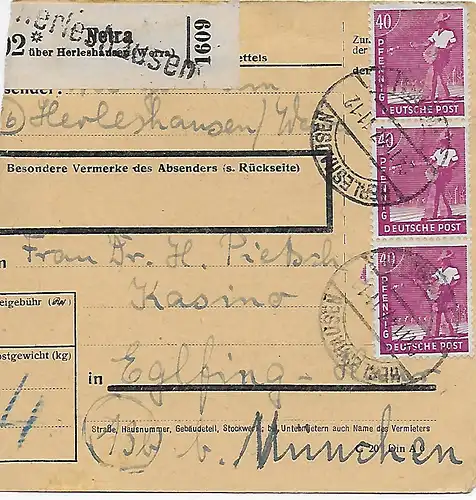 Herleshausen
02*
Netra
über Herleshausen (Werra)
1609
ettels
Zur
der
den
bsender:
(16) Herleshausen/We
Besondere Vermerke des Absenders (s. Rückseite)
n
Frau Dr. H. Pietsch
Kasino
eigebühr
ostgewicht (kg)
4
in
Eglfing-
Straße, Hausnummer, Gebäudeteil, Stockwerk; bei Untermietern auch Name des Vermieters
(13b) b. München
C 20 Din A
40
PFENNIG
DEUTSCHE POST
HERLESHAUSEN
40
PFENNIG
DEUTSCHE POST
40
PFENNIG
DEUTSCHE POST
HERLESHAUSEN